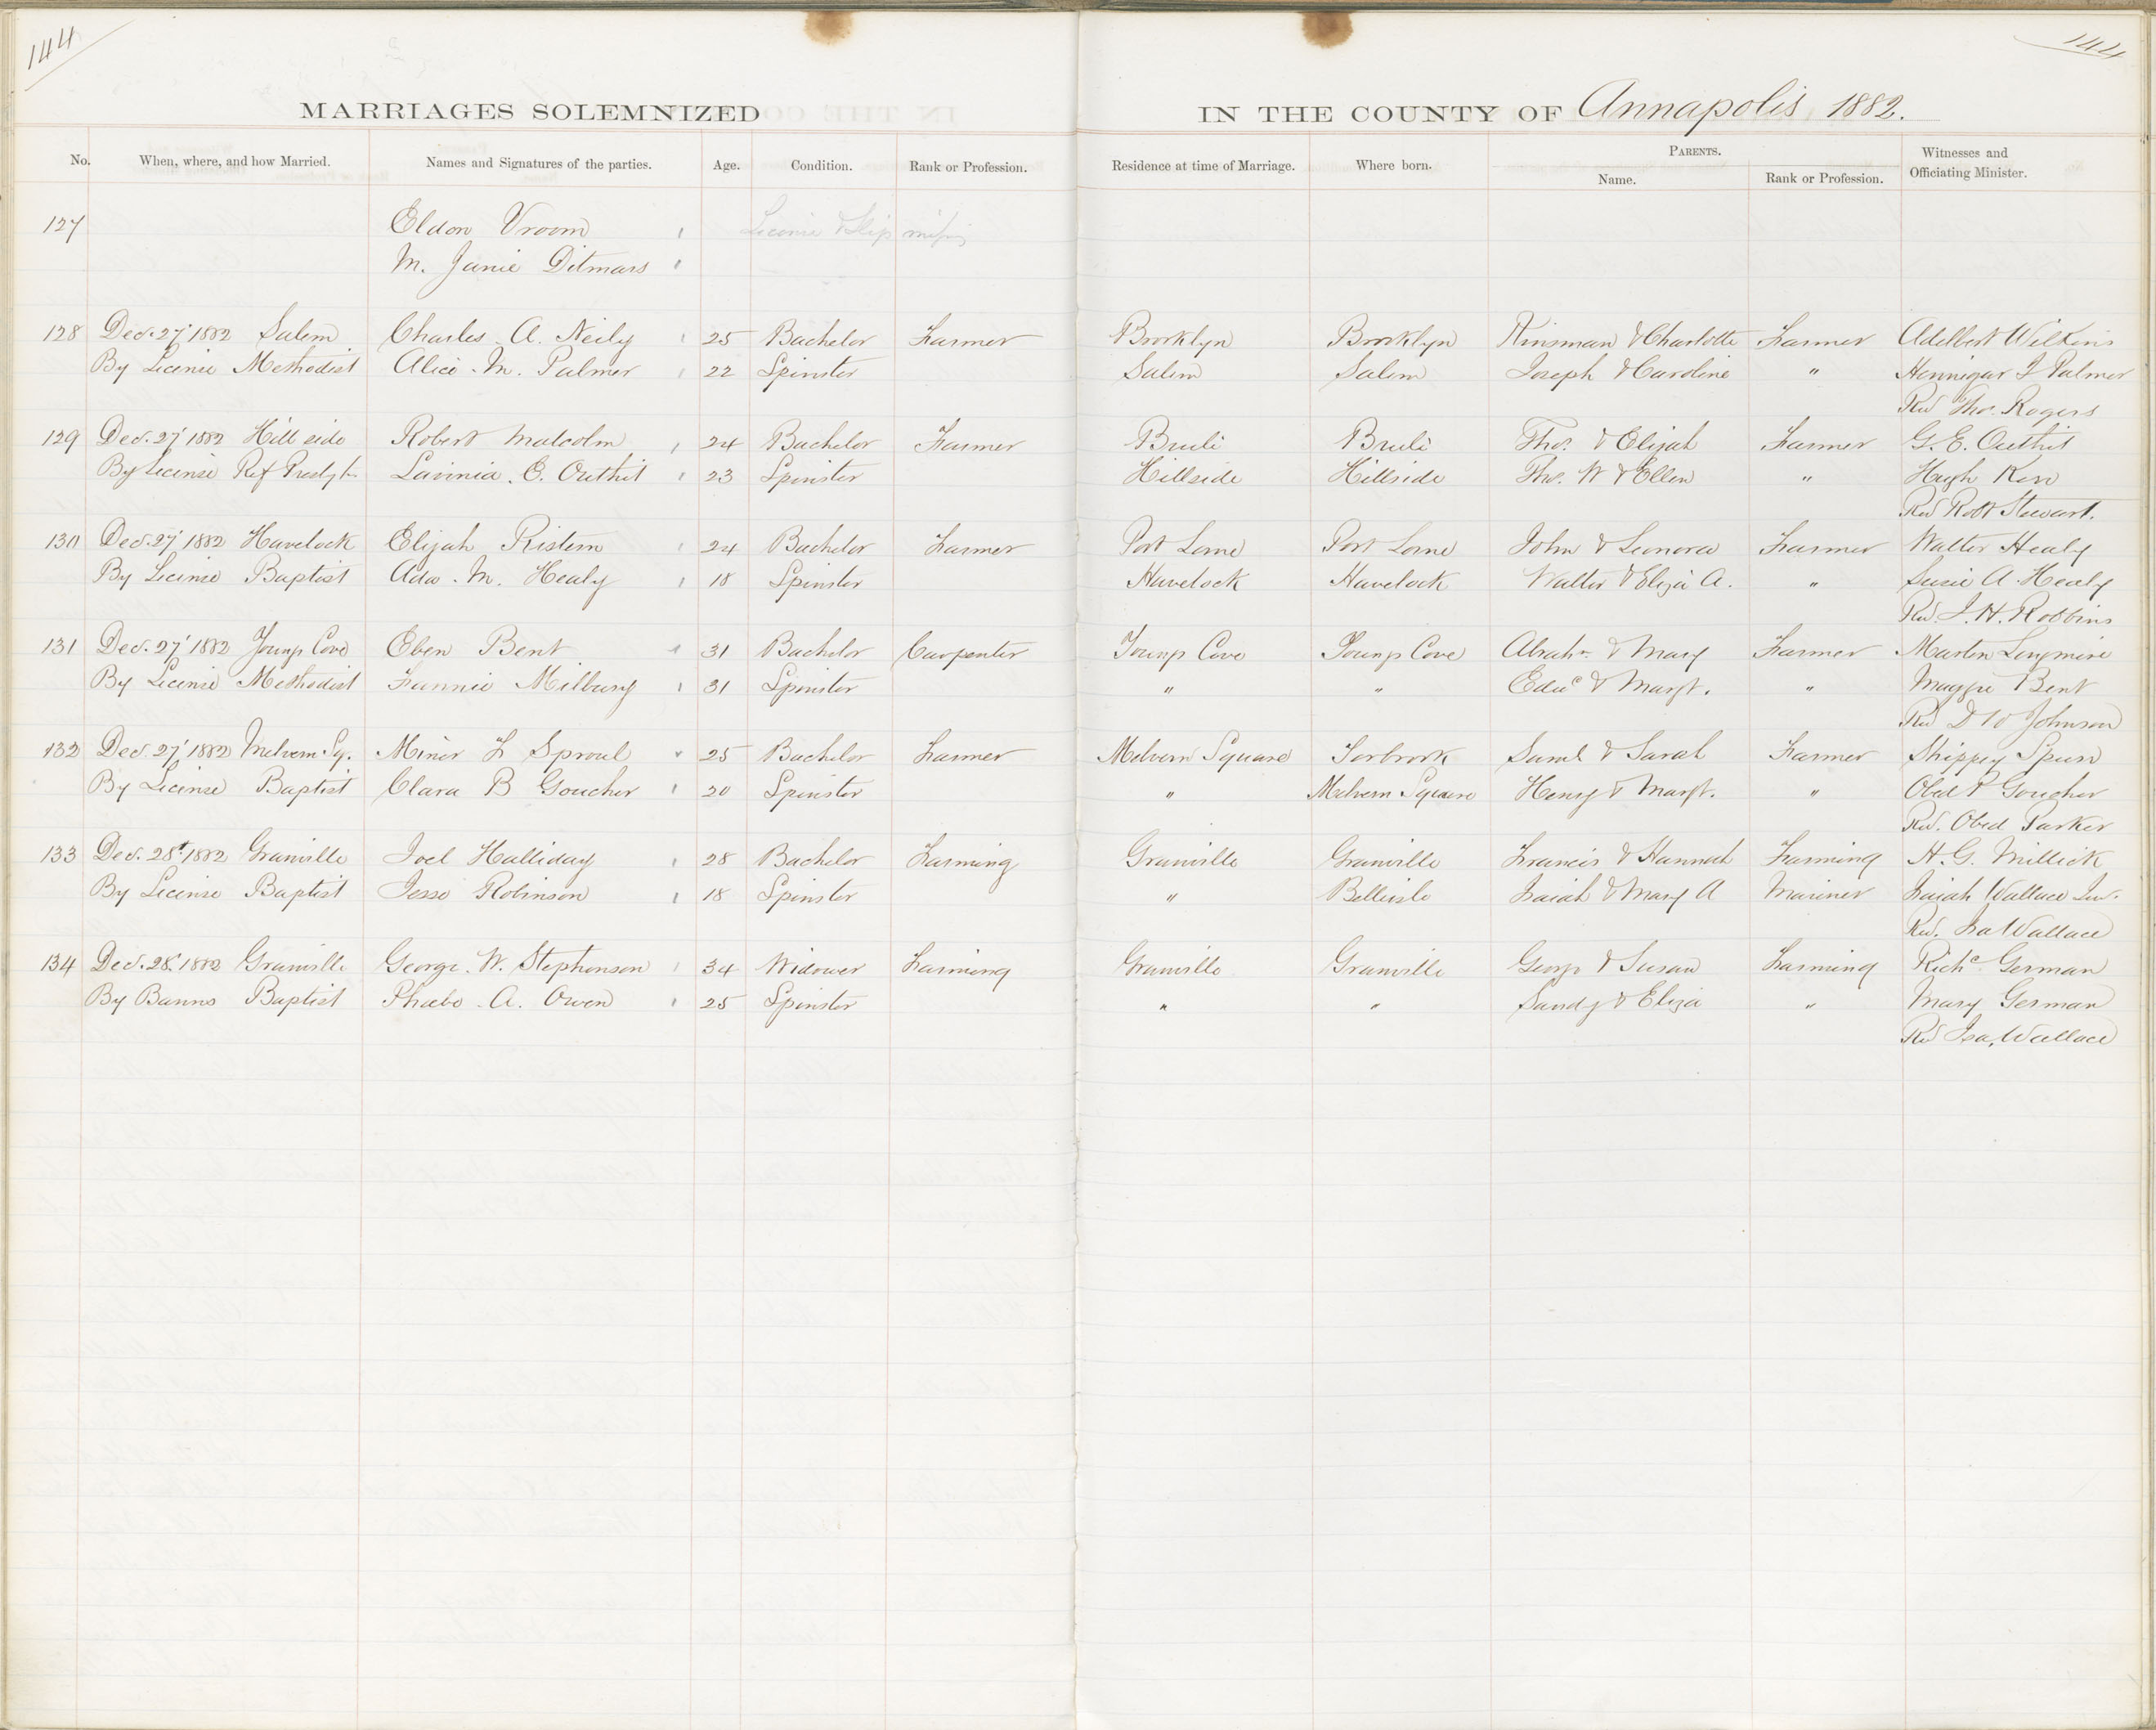 144
144
MARRIAGES SOLEMNIZED IN THE COUNTY OF Annapolis 1882.
No. When, where, and how Married. Names and Signatures of the parties. Age. Condition. Rank or Profession. Residence at time of Marriage. Where born. PARENTS. Name. Rank or Profession. Witnesses and Officiating Minister.
127 Eldon Vroom Licence & Slip missing
M. Janie Ditmars
128 Dec. 27' 1882 Salem Charles A. Neily 25 Bachelor Farmer Brooklyn Brooklyn Kinsman & Charlotte Farmer Adelbert Wilkins
By License Methodist Alice M. Palmer 22 Spinster Salem Salem Joseph & Caroline " Hennigar I Palmer
Rev Thos. Rogers
129 Dec. 27' 1882 Hill side Robert Malcolm 24 Bachelor Farmer Bruli Bruli Thos. & Elijah Farmer G. E. Outhit
By License Ref Presbytn Lavinia E. Outhit 23 Spinster Hillside Hillside Thos. W & Ellen " Hugh Kerr
Rev Robt Stewart.
130 Dec. 27' 1882 Havelock Elijah Risteen 24 Bachelor Farmer Port Lorne Port Lorne John & Leonora Farmer Walter Healy
By License Baptist Ada M. Healy 18 Spinster Havelock Havelock Walter & Eliza A. " Susie A. Healy
Rev. J. H. Robbins
131 Dec. 27' 1882 Youngs Cove Eben Bent 31 Bachelor Carpenter Youngs Cove Youngs Cove Abrahm & Mary Farmer Marten Longmire
By License Methodist Fannie Milbury 31 Spinster " " Edwd & Margt. " Maggie Bent
Rev D W Johnson
132 Dec. 27' 1882 Melvern Sq. Miner F Sproul 25 Bachelor Farmer Melvern Square Torbrook Saml & Sarah Farmer Shippey Spurr
By License Baptist Clara B Goucher 20 Spinster " Melvern Square Henry & Margt. " Obed P Goucher
Rev. Obed Parker
133 Dec. 28' 1882 Granville Joel Halliday 28 Bachelor Farming Granville Granville Francis & Hannah Farming H. G. Mellick
By License Baptist Jesse Robinson 18 Spinster " Belleisle Isaiah & Mary A Mariner Isaiah Wallace Jur.
Rev. Isa Wallace
134 Dec. 28' 1882 Granville George. W. Stephenson 34 Widower Farming Granville Granville George & Susan Farming Richd German
By Banns Baptist Phoebe A. Owen 25 Spinster " " Sandy & Eliza " Mary German
Rev Isa. Wallace